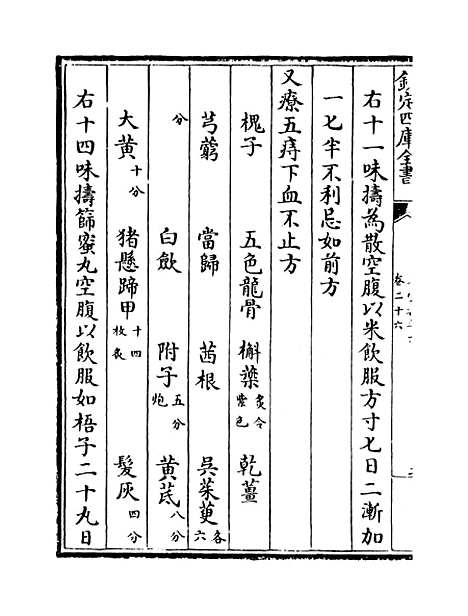 欽定四庫全書
卷二十六
右十一味擣為散空腹以米飲服方寸匕日二漸加
一匕半不利忌如前方
又療五痔下血不止方
槐子 五色龍骨 槲藥炙令紫色 乾薑
芎藭 當歸 茜根 吳茱萸各六
分 白斂 附子五分炮 黃芪八分
大黃十分 猪懸蹄甲十四枚炙 髮灰四分
右十四味擣篩蜜丸空腹以飲服如梧子二十九日